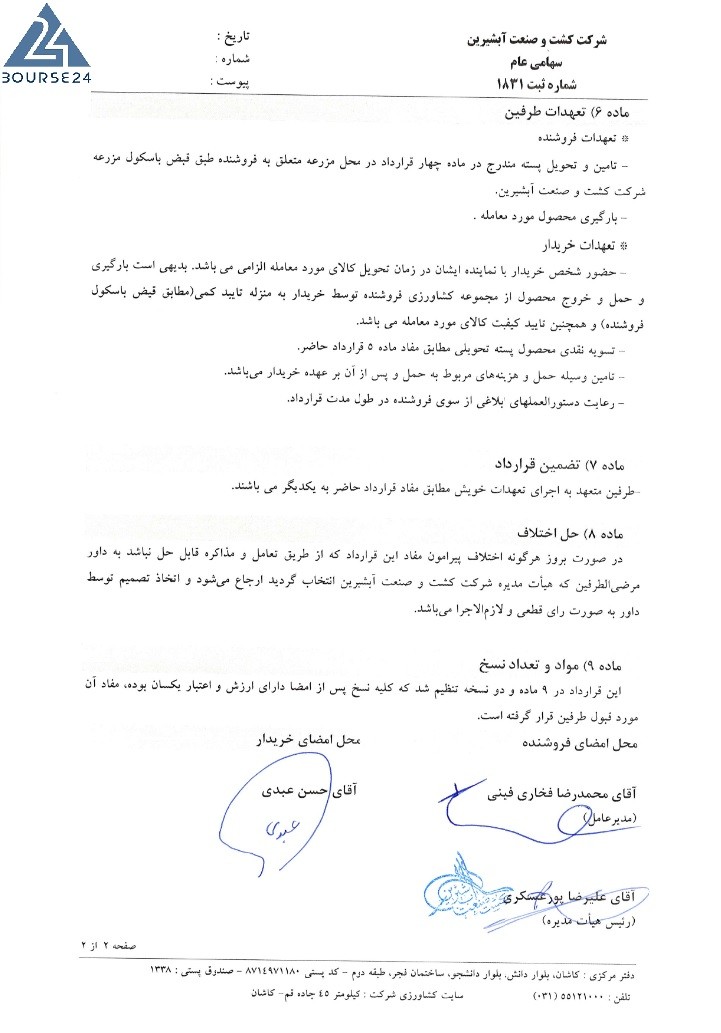 BOURSE24
شرکت کشت و صنعت آبشیرین
سهامی عام
شماره ثبت ۱۸۳۱
تاریخ :
شماره :
پیوست :
ماده ۶) تعهدات طرفین
* تعهدات فروشنده
- تامین و تحویل پسته مندرج در ماده چهار قرارداد در محل مزرعه متعلق به فروشنده طبق قبض باسکول مزرعه
شرکت کشت و صنعت آبشیرین.
- بارگیری محصول مورد معامله .
* تعهدات خریدار
- حضور شخص خریدار با نماینده ایشان در زمان تحویل کالای مورد معامله الزامی می باشد. بدیهی است بارگیری
و حمل و خروج محصول از مجموعه کشاورزی فروشنده توسط خریدار به منزله تایید کمی(مطابق قبض باسکول
فروشنده) و همچنین تایید کیفیت کالای مورد معامله می باشد.
- تسویه نقدی محصول پسته تحویلی مطابق مفاد ماده ۵ قرارداد حاضر.
- تامین وسیله حمل و هزینه‌های مربوط به حمل و پس از آن بر عهده خریدار می‌باشد.
- رعایت دستورالعملهای ابلاغی از سوی فروشنده در طول مدت قرارداد.
ماده ۷) تضمین قرارداد
-طرفین متعهد به اجرای تعهدات خویش مطابق مفاد قرارداد حاضر به یکدیگر می باشند.
ماده ۸) حل اختلاف
در صورت بروز هرگونه اختلاف پیرامون مفاد این قرارداد که از طریق تعامل و مذاکره قابل حل نباشد به داور
مرضی‌الطرفین که هیأت مدیره شرکت کشت و صنعت آبشیرین انتخاب گردید ارجاع می‌شود و اتخاذ تصمیم توسط
داور به صورت رای قطعی و لازم‌الاجرا می‌باشد.
ماده ۹) مواد و تعداد نسخ
این قرارداد در ۹ ماده و دو نسخه تنظیم شد که کلیه نسخ پس از امضا دارای ارزش و اعتبار یکسان بوده، مفاد آن
مورد قبول طرفین قرار گرفته است.
محل امضای فروشنده
محل امضای خریدار
آقای محمدرضا فخاری فینی
(مدیرعامل)
آقای حسن عبدی
عبدی
آقای علیرضا پورعسکری
(رئیس هیأت مدیره)
صفحه ۲ از ۲
دفتر مرکزی : کاشان، بلوار دانش، بلوار دانشجو، ساختمان فجر، طبقه دوم - کد پستی ۸۷۱۴۹۷۱۱۸۰ - صندوق پستی : ۱۳۳۸
تلفن : ۵۵۱۲۱۰۰۰ (۰۳۱)
سایت کشاورزی شرکت : کیلومتر ۴۵ جاده قم- کاشان